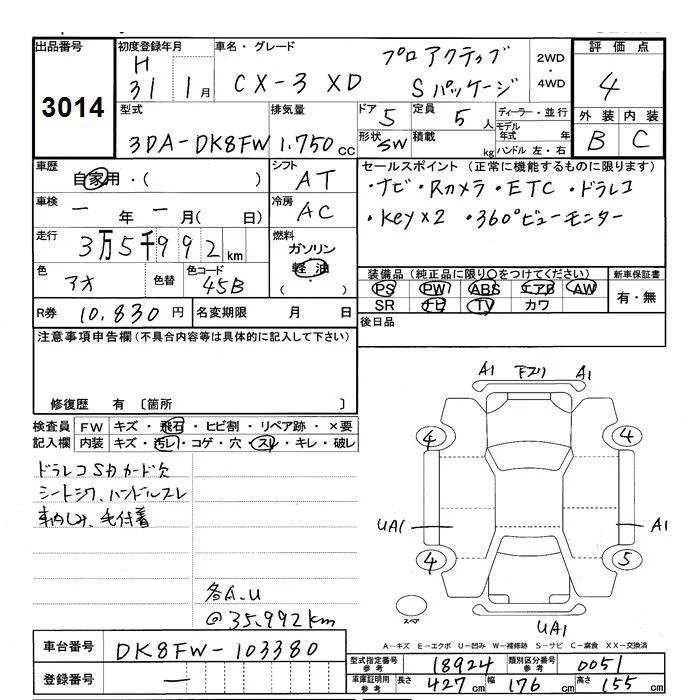 出品番号 初度登録年月 車名・グレード 評価点
3014
H 31 1月
CX-3 XD プロアクティブ Sパッケージ
2WD
・
4WD
4
型式 排気量 ドア 5 定員 5人 ディーラー・並行 外装 内装
3DA-DK8FW 1.750cc 形状 SW 積載 kg モデル年式 年 B C
ハンドル 左・右
車歴 自家用・( ) シフト AT
セールスポイント(正常に機能するものに限ります)
・ナビ・Rカメラ・ETC・ドラレコ
・Key×2 ・360°ビューモニター
車検 ー年ー月( 日) 冷房 AC
走行 3万5千992km 燃料 ガソリン 軽油 ( ・ )
色 アオ 色替 色コード 45B
装備品(純正品に限り○をつけてください) 新車保証書
PS PW ABS エアB AW 有・無
SR ナビ TV カワ
R券 10,830円 名変期限 月 日
後日品
注意事項申告欄(不具合内容等は具体的に記入して下さい)
修復歴 有〔箇所 〕
検査員 FW キズ・飛石・ヒビ割・リペア跡・×要
記入欄 内装 キズ・汚レ・コゲ・穴・スレ・キレ・破レ
ドラレコSDカード欠
シートシワ、ハンドルスレ
車内しみ、毛付着
各A.U
@35,992km
A1 Fフリ A1
4 4
UA1 A1
4 5
スペア
UA1
A-キズ E-エクボ U-凹み W-補修跡 S-サビ C-腐食 XX-交換済
車台番号 DK8FW-103380
型式指定番号 参考 18924 類別区分番号 参考 0051
登録番号 ー
車庫証明用 参考 長さ 427cm 幅 176cm 高さ 155cm